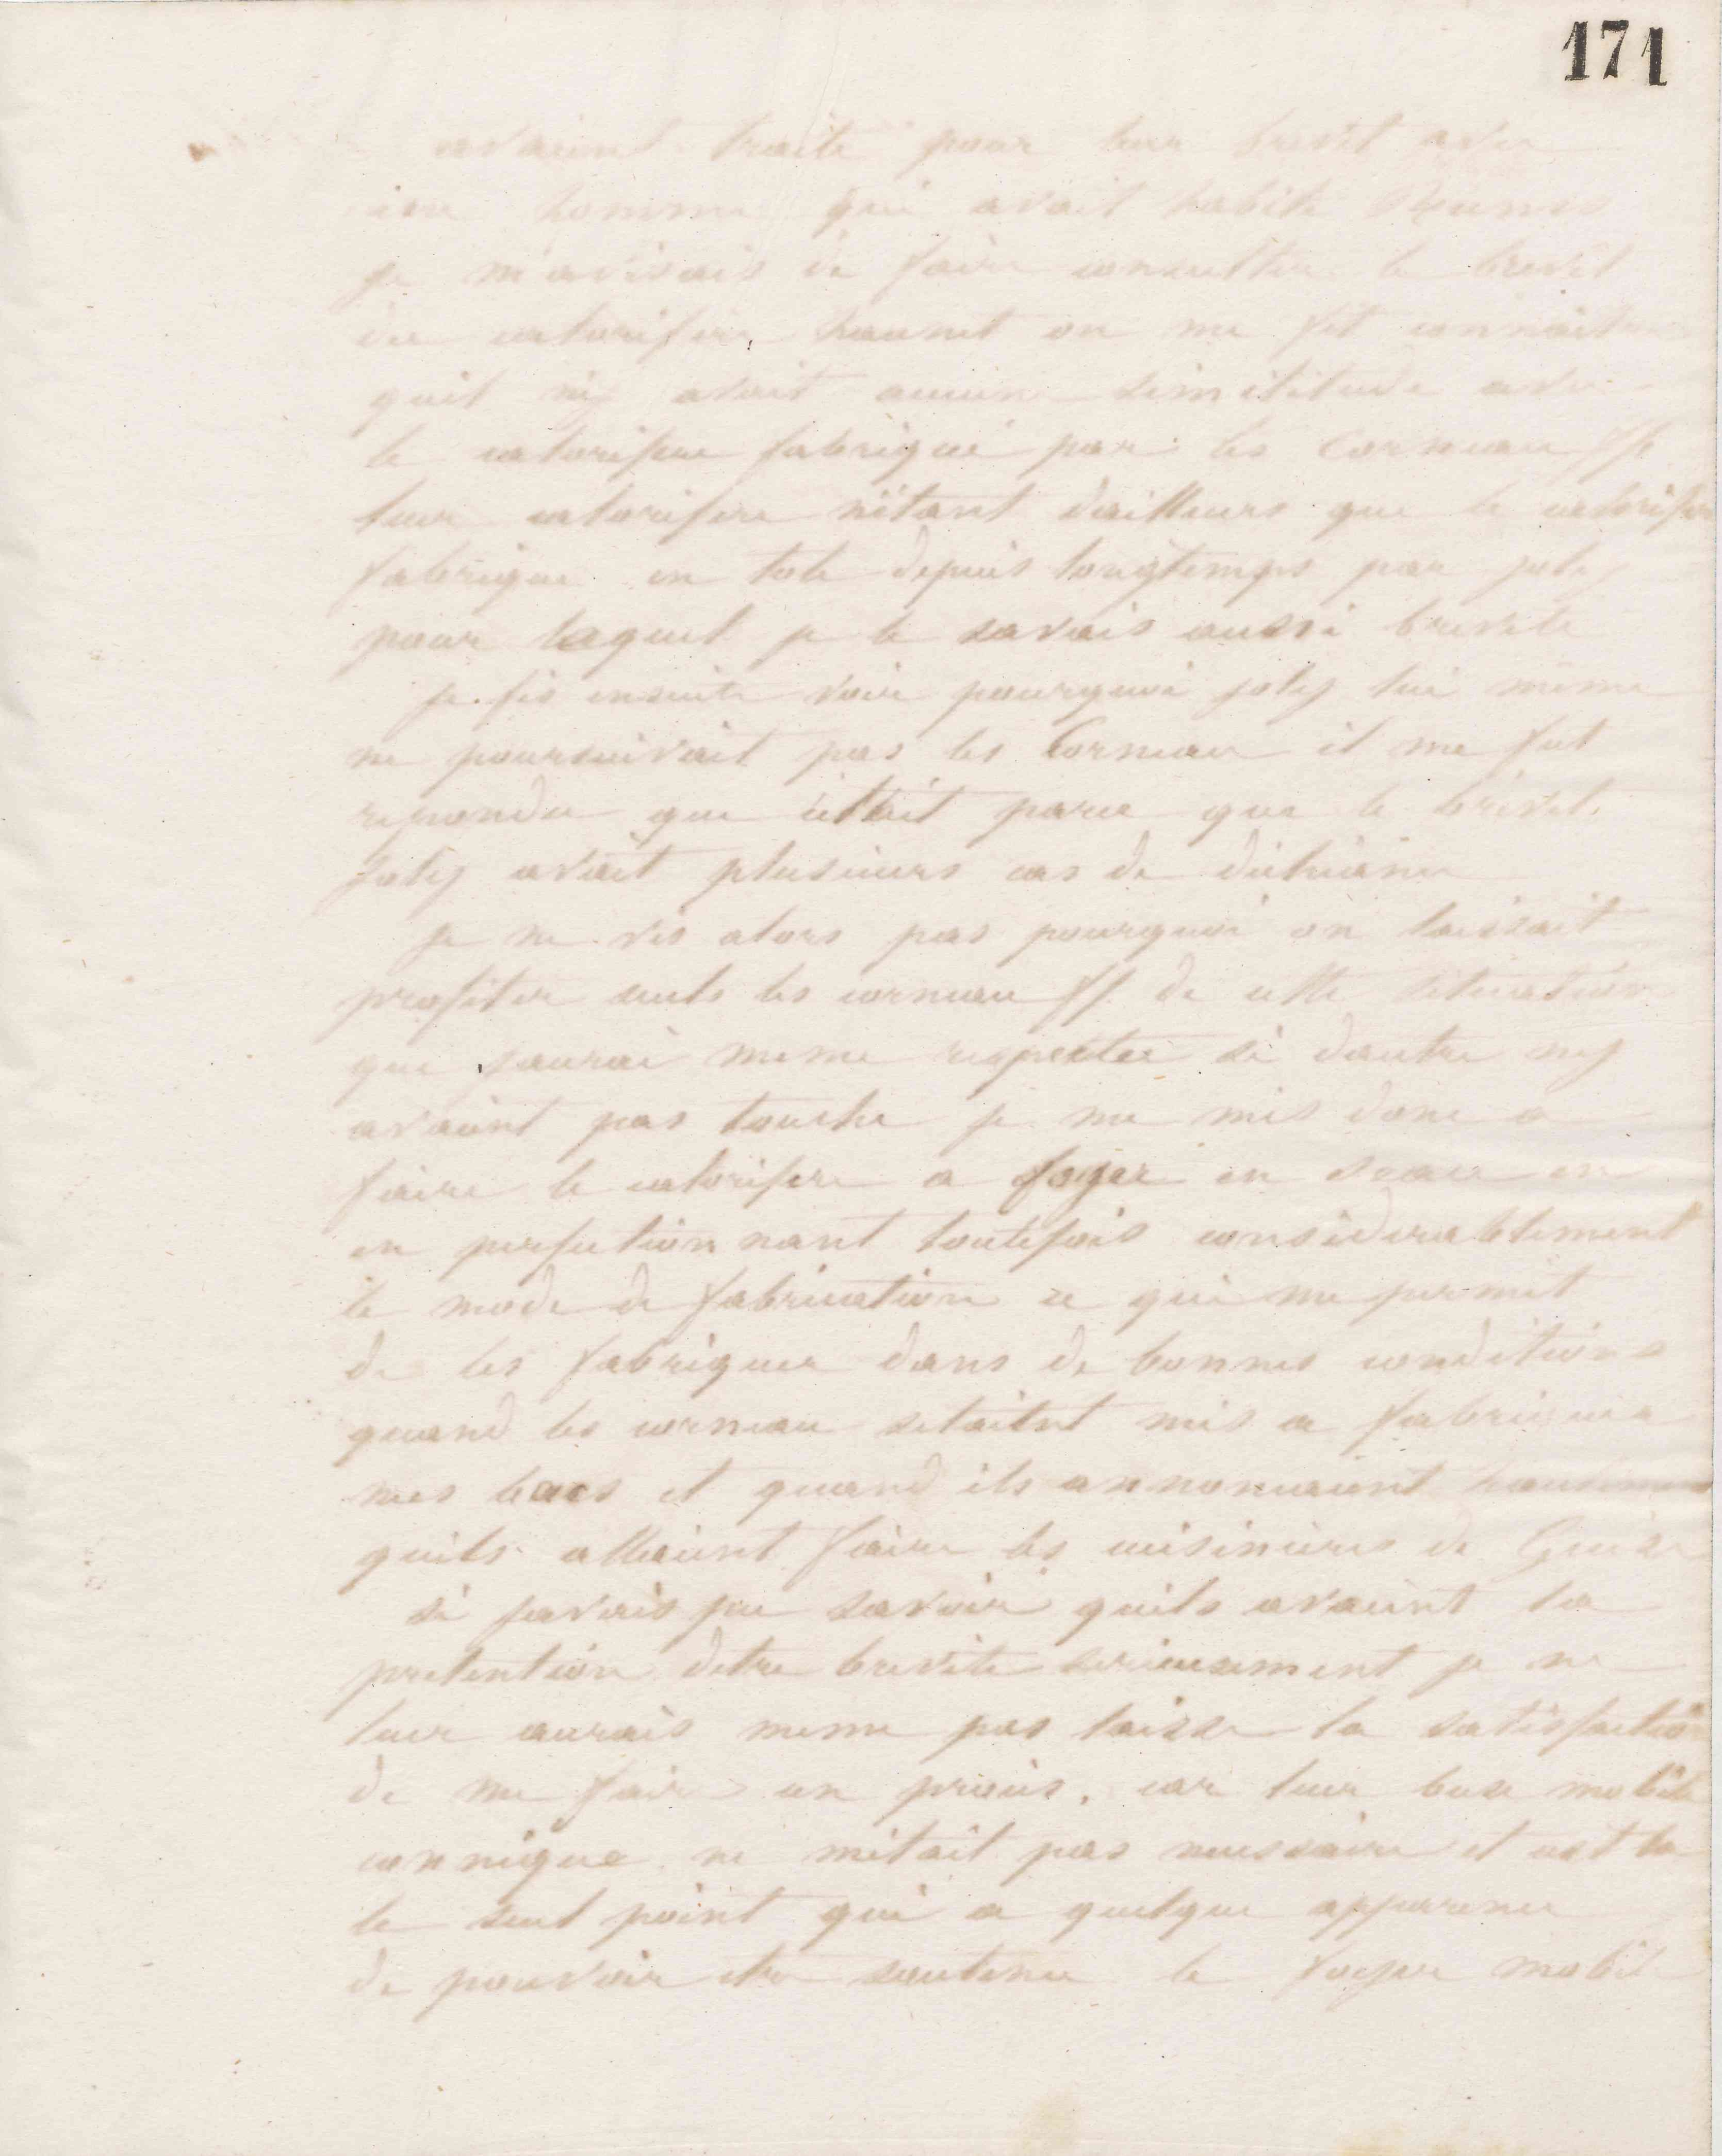 171
avaient traité pour leur brevet avec
un homme qui avait habité
je m'avisais de faire consulter le brevet
du calorifère on me fit connaitre
quil ny avait aucune similitude avec
le calorifère fabriqué par les Corneau ff
leur calorifère nétant dailleurs que le calorifère
fabriqué en tole depuis longtemps par joly
pour lequel je le savais aussi breveté
je fis ensuite voir pourquoi joly lui meme
ne poursuivait pas les Corneau il me fut
repondu que cétait parce que le brévet
Joly avait plusieurs cas de déchéance
je ne vis alors pas pourquoi on laissait
profiter seuls les corneau ff de cette situation
que jaurai meme respectée si dautre ny
avaient pas touché je me mis donc a
faire le calorifère a foyer en
en perfectionnant toutefois considerablement
le mode de fabrication ce qui me permit
de les fabriquer dans de bonnes conditions
quand les corneau sétaitnt mis a fabriquer
mes bacs et quand ils annoncaient
quils allaient faire les cuisinières de Guise
si javais pu savoir quils avaient la
pretention detre breveté serieusement je ne
leur aurais meme pas laissé la satisfaction
de me faire un procès, car leur buse mobile
connique ne métait pas necessaire et cest la
le seul point qui a quelque apparence
de pouvoir etre soutenu le foyer mobile